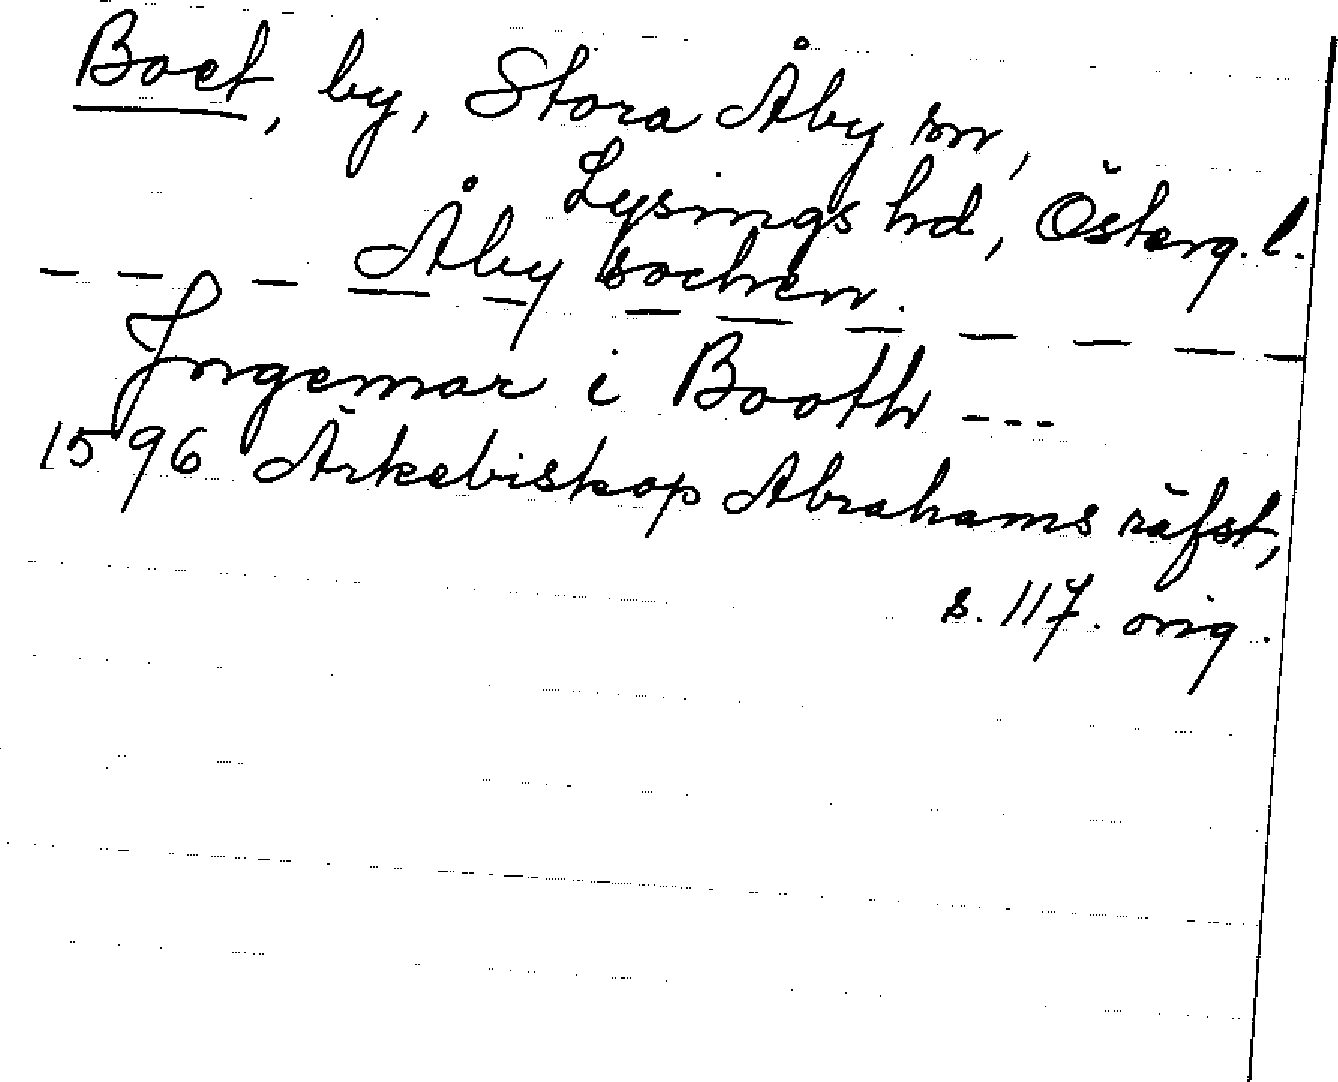 Boet, by, Stora Åby sn,
Lysings hd, Österg.l.
Åby sochen.
Jngemar i Booth ---
1596 Ärkebiskop Abrahams räfst,
s. 117. orig.